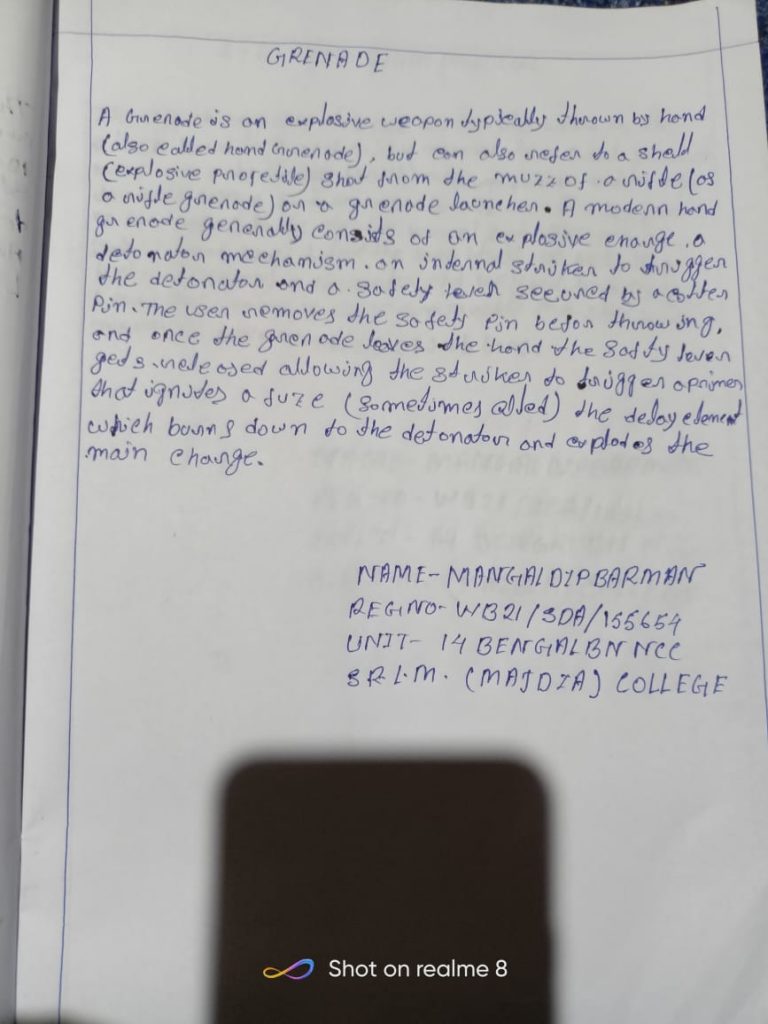 GRENADE
A Grenade is an explosive weapon typically thrown by hand
(also called hand Grenade), but can also refer to a shell
(explosive projectile) shot from the muzz of a rifle (as
a rifle grenade) or a grenade launcher. A modern hand
grenade generally consists of an explosive charge, a
detonator mechanism. an internal striker to trigger
the detonator and a safety lever secured by a cotter
Pin. The user removes the safety Pin befor throwing,
and once the grenade leaves the hand the Safty lever
gets released allowing the striker to trigger a primer
that ignites a fuze (sometimes called) the delay element
which bourns down to the detonator and explodes the
main charge.
NAME- MANGALDIP BARMAN
REGINO- WB21/SDA/155654
UNIT- 14 BENGAL BN NCC
S.R.L.M. (MAJDIA) COLLEGE
Shot on realme 8